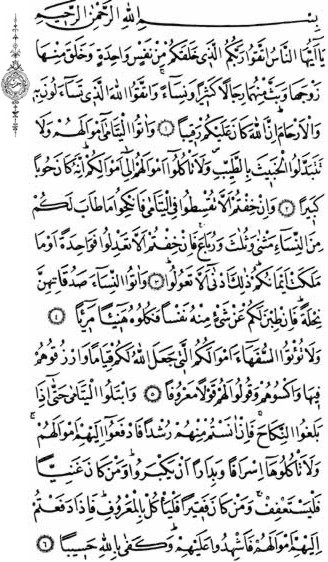 بِسْمِ اللّٰهِ الرَّحْمٰنِ الرَّحِيمِ
يَٓا اَيُّهَا النَّاسُ اتَّقُوا رَبَّكُمُ الَّذ۪ي خَلَقَكُمْ مِنْ نَفْسٍ وَاحِدَةٍ وَخَلَقَ مِنْهَا
زَوْجَهَا وَبَثَّ مِنْهُمَا رِجَالًا كَث۪يرًا وَنِسَٓاءًۚ وَاتَّقُوا اللّٰهَ الَّذ۪ي تَسَٓاءَلُونَ بِه۪
وَالْاَرْحَامَۜ اِنَّ اللّٰهَ كَانَ عَلَيْكُمْ رَق۪يبًا ﴿١﴾ وَاٰتُوا الْيَتَامٰٓى اَمْوَالَهُمْ وَلَا
تَتَبَدَّلُوا الْخَب۪يثَ بِالطَّيِّبِۖ وَلَا تَأْكُلُٓوا اَمْوَالَهُمْ اِلٰٓى اَمْوَالِكُمْۜ اِنَّهُ كَانَ حُوبًا
كَب۪يرًا ﴿٢﴾ وَاِنْ خِفْتُمْ اَلَّا تُقْسِطُوا فِي الْيَتَامٰى فَانْكِحُوا مَا طَابَ لَكُمْ
مِنَ النِّسَٓاءِ مَثْنٰى وَثُلٰثَ وَرُبَاعَۚ فَاِنْ خِفْتُمْ اَلَّا تَعْدِلُوا فَوَاحِدَةً اَوْ مَا
مَلَكَتْ اَيْمَانُكُمْۜ ذٰلِكَ اَدْنٰٓى اَلَّا تَعُولُوا ﴿٣﴾ وَاٰتُوا النِّسَٓاءَ صَدُقَاتِهِنَّ
نِحْلَةًۜ فَاِنْ طِبْنَ لَكُمْ عَنْ شَيْءٍ مِنْهُ نَفْسًا فَكُلُوهُ هَن۪ٓيـًٔا مَر۪ٓيـًٔا ﴿٤﴾
وَلَا تُؤْتُوا السُّفَهَٓاءَ اَمْوَالَكُمُ الَّت۪ي جَعَلَ اللّٰهُ لَكُمْ قِيَامًا وَارْزُقُوهُمْ
ف۪يهَا وَاكْسُوهُمْ وَقُولُوا لَهُمْ قَوْلًا مَعْرُوفًا ﴿٥﴾ وَابْتَلُوا الْيَتَامٰى حَتّٰٓى اِذَا
بَلَغُوا النِّكَاحَۚ فَاِنْ اٰنَسْتُمْ مِنْهُمْ رُشْدًا فَادْفَعُٓوا اِلَيْهِمْ اَمْوَالَهُمْۚ
وَلَا تَأْكُلُوهَٓا اِسْرَافًا وَبِدَارًا اَنْ يَكْبَرُواۜ وَمَنْ كَانَ غَنِيًّا
فَلْيَسْتَعْفِفْۚ وَمَنْ كَانَ فَق۪يرًا فَلْيَأْكُلْ بِالْمَعْرُوفِۜ فَاِذَا دَفَعْتُمْ
اِلَيْهِمْ اَمْوَالَهُمْ فَاَشْهِدُوا عَلَيْهِمْۜ وَكَفٰى بِاللّٰهِ حَس۪يبًا ﴿٦﴾